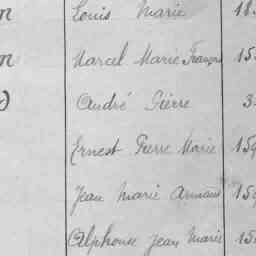 Louis Marie 18
Marcel Marie François 15
André Pierre 3
Ernest Pierre Marie 159
Jean Marie Armand 159
Alphonse Jean Marie 15